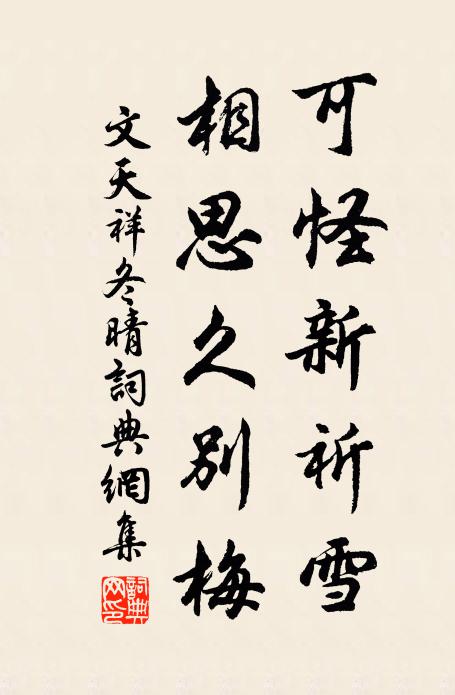 可怪新祈雪
相思久別梅
文天祥冬晴詞典網集
詞典網印